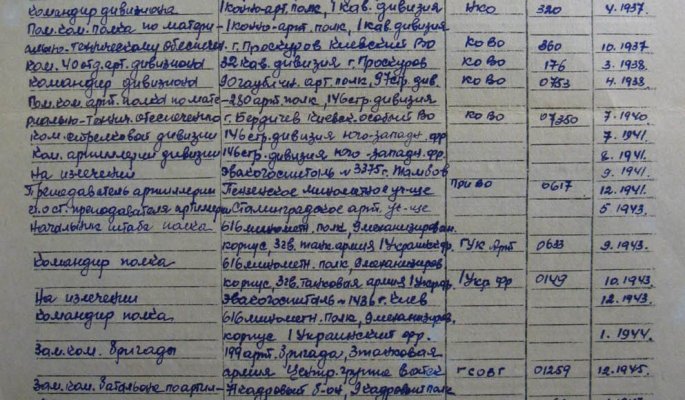 Командир дивизиона 1 конно-арт. полк, 1 кав. дивизия НКО 320 4.1937.
Пом. ком. полка по матери- 1 конно-арт. полк, 1 кав. дивизия
ально-техническому обеспечен. г. Проскуров Киевский Во КОВО 360 10.1937
Ком. 40 отд. арт. дивизионы 32 кав. дивизия г. Проскуров КОВО 176 3.1938.
Командир дивизионы 90 гаубичн. арт. полк, 97 стр. див. КОВО 0753 4.1938.
Пом. ком. арт. полка по мате- 280 арт. полк, 146 стр. дивизия
риально-технич. обеспечению г. Бердичев Киевск. особый Во КОВО 07350 7.1940.
Ком. стрелковой дивизии 146 стр. дивизия юго-западн. фр 7.1941.
Ком. артиллерии дивизии 146 стр. дивизия юго-западн. фр. 8.1941.
На излечении Эвакогоспиталь №3375 г. Тамбов 9.1941.
Преподаватель артиллерии Пензенское минометное уч-ще ПриВО 0617 12.1941.
ст. преподавателя артиллери Сталинградское арт. уч-ще 5 1943.
Начальник штаба полка 616 миномет. полк, 9 механизирован.
корпус, 3 гв. танк. армия 1 Украинск. фр. ГУК Арт 0633 9.1943.
Командир полка 616 минометн. полк, 9 механизиров.
корпус, 3 гв. танковая армия 1 Укр. фр. 1 Укр фр 0149 10.1943.
На излечении Эвакогоспиталь №1436 г. Киев 12.1943.
Командир полка 616 минометн. полк, 9 механизиров.
корпус 1 Украинский фр. 1.1944.
Зам. ком. бригады 199 арт. бригада, 3 танковая
армия Центр. группа войск ГСОВГ 01259 12.1945.
Зам. ком. батальона по артил- кадровый б-он, 9 кадровый полк